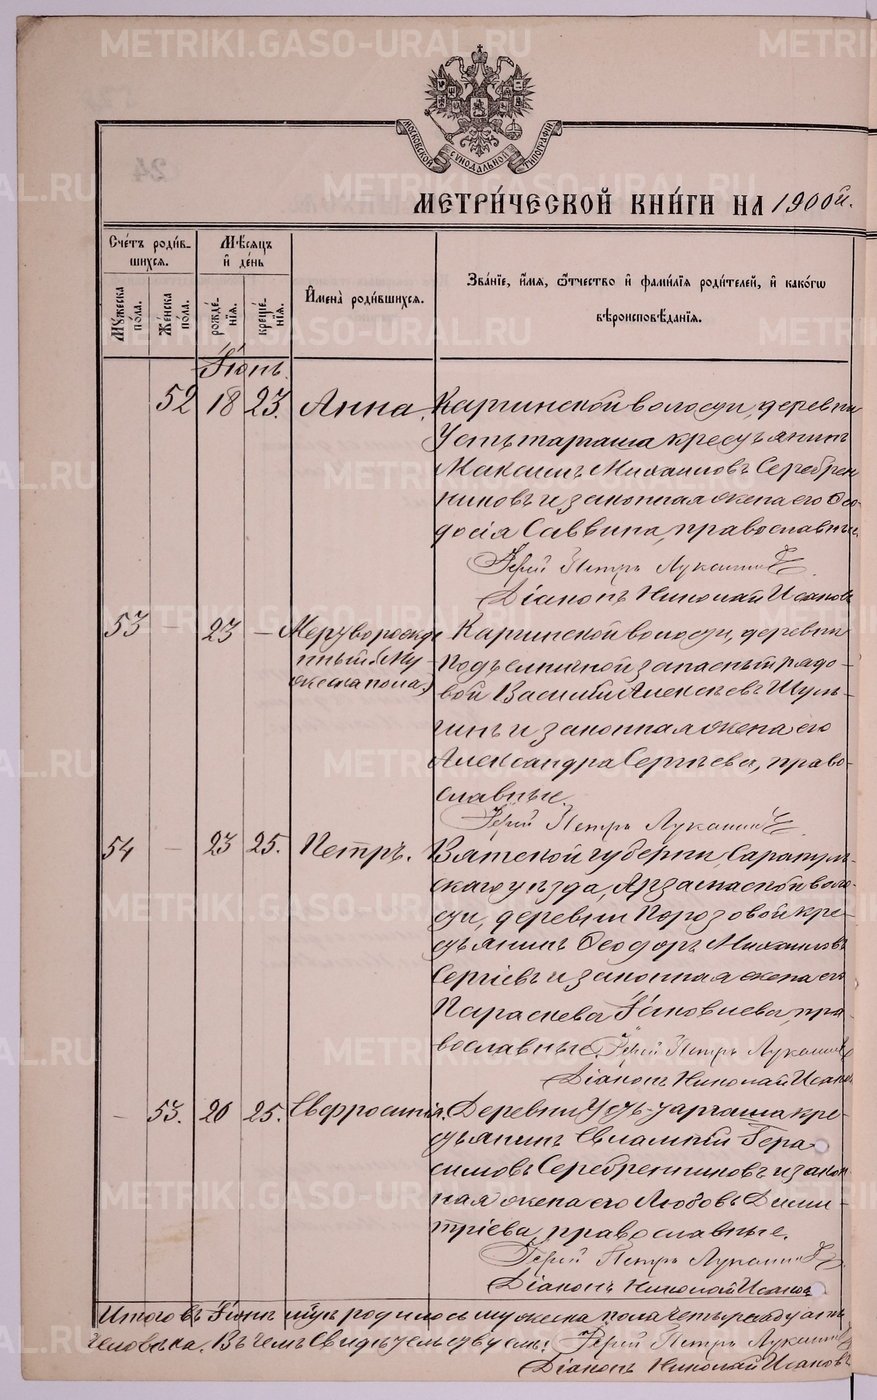 METRIKI.GASO-URAL.RU
МОСКОВСКОЙ СѴНОДАЛЬНОЙ ТИПОГРАФІИ
МЕТРИ́ЧЕСКОЙ КНИ́ГИ НА 1900й.
Сче́тъ роди́в-
шихся.
Мѣ́сяцъ
и҆ де́нь
Му́жеска
по́ла.
Же́нска
по́ла.
рожде́-
нїѧ.
креще́-
нїѧ.
И҆мена̀ роди́вшихся.
Зва́нїе, и҆́мѧ, ѻ҆́тчество и҆ фами́лїѧ роди́телей, и҆ како́гѡ
вѣроисповѣ́данїѧ.
Іюнь.
52 18 23. Анна. Каргинской волости, деревни
Усть-таргаша крестьянинъ
Максимъ Михаиловъ Серебрен-
никовъ и законная жена его Ѳео-
досія Саввина, православные
Іерей Петръ Лукашин
Діаконъ Николай Исаковъ
53 – 23 – Мертворожде
нный (му-
жеска пола)
Каргинской волости, деревни
Подъельничной запасный рядо-
вой Василій Алексѣевъ Шуль-
гинъ и законная жена его
Александра Сергѣева, право-
славные
Іерей Петръ Лукашин
54 – 23 25. Петръ. Вятской губерніи, Сарапуль-
скаго уѣзда, воло-
сти, деревни Порозовой кре-
стьянинъ Ѳеодоръ Михаиловъ
Сергіевъ и законная жена его
Параскева Іаковлева, пра-
вославные. Іерей Петръ Лукашин
Діаконъ Николай Исаковъ
– 53. 20 25. Евфросинія. Деревни Усть-таргаша кре-
стьянинъ Евлампій Гера-
симовъ Серебренниковъ и закон-
ная жена его Любовь Дими-
тріева, православные.
Іерей Петръ Лукашин
Діаконъ Николай Исаковъ
Итого въ Іюнѣ мцѣ родилось мужеска пола четырнадцать
человѣка. Въ чемъ свидѣтельствуемъ: Іерей Петръ Лукашин
Діаконъ Николай Исаковъ